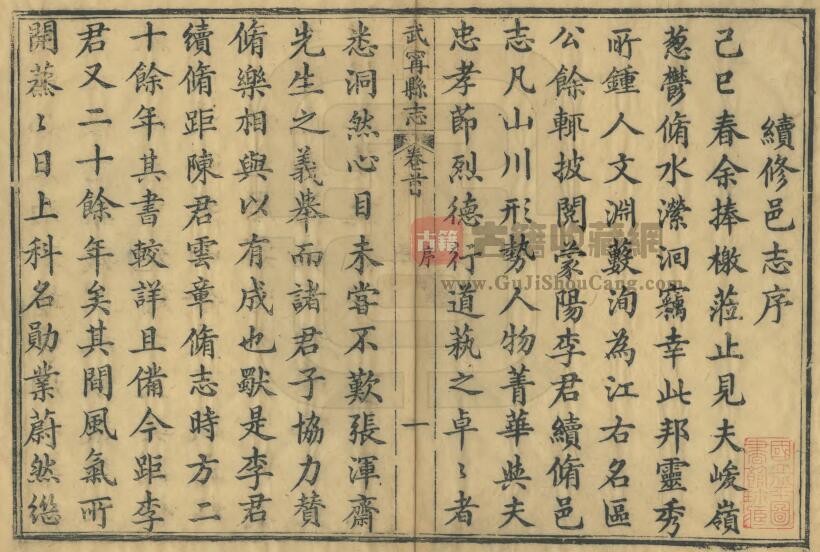 續修邑志序
己巳春余捧檄蒞止見夫峻嶺
蔥鬱脩水瀠洄竊幸此邦靈秀
所鍾人文淵藪洵為江右名區
公餘輒披閱蒙陽李君續脩邑
志凡山川形勢人物菁華與夫
忠孝節烈德行道執之卓〻者
武寧縣志 卷首 序 一
悉洞然心目未嘗不歎張渾齋
先生之義舉而諸君子協力贊
脩樂相與以有成也獸是李君
續脩距陳君雲章脩志時方二
十餘年其書較詳且備今距李
君又二十餘年矣其間風氣所
開蒸〻日上科名勛業蔚然繼
古籍
古籍收藏網
www.GuJiShouCang.com